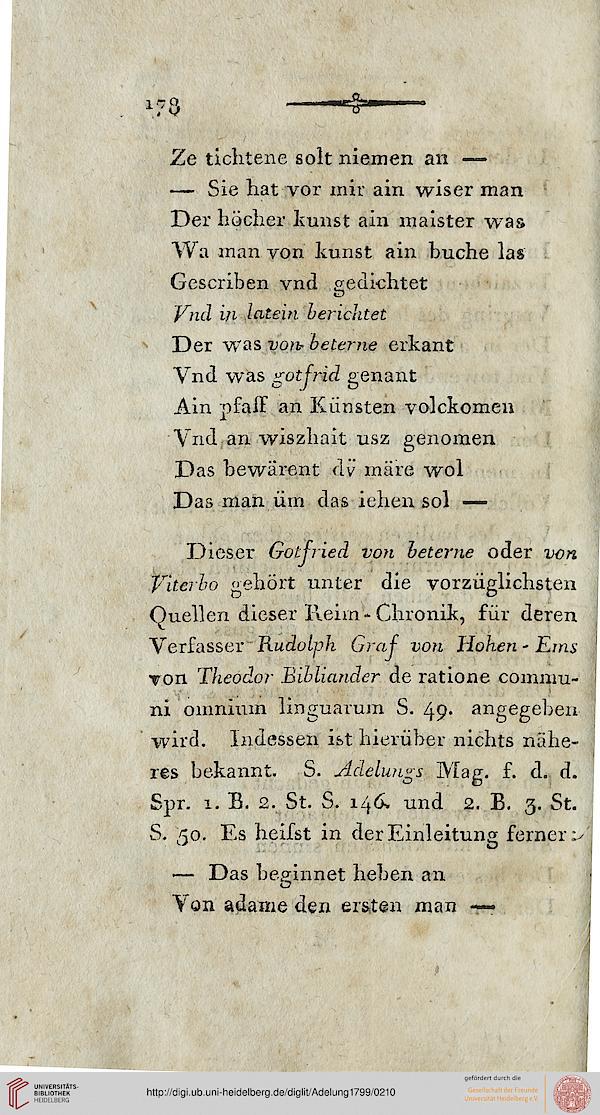 178
Ze tichtene solt niemen an —
— Sie hat vor mir ain wiser man
Der höcher kunst ain maister was
Wa man von kunst ain buche las
Gescriben vnd gedichtet
Vnd in latein berichtet
Der was von beterne erkant
Vnd was gotfrid genant
Ain pfaff an Künsten volckomen
Vnd an wiszhait usz genomen
Das bewärent dv̈ märe wol
Das man üm das iehen sol —
Dieser Gotfried von beterne oder von
Viterbo gehört unter die vorzüglichsten
Quellen dieser Reim-Chronik, für deren
Verfasser Rudolph Graf von Hohen-Ems
von Theodor Bibliander de ratione commu-
ni omnium linguarum S. 49. angegeben
wird. Indessen ist hierüber nichts nähe-
res bekannt. S. Adelungs Mag. f. d. d.
Spr. 1. B. 2. St. S. 146. und 2. B. 3. St.
S. 50. Es heifst in der Einleitung ferner:
— Das beginnet heben an
Von adame den ersten man —
UNIVERSITÄTS-
BIBLIOTHEK
HEIDELBERG
http://digi.ub.uni-heidelberg.de/diglit/Adelung1799/0210
gefördert durch die
Gesellschaft der Freunde
Universität Heidelberg e.V.